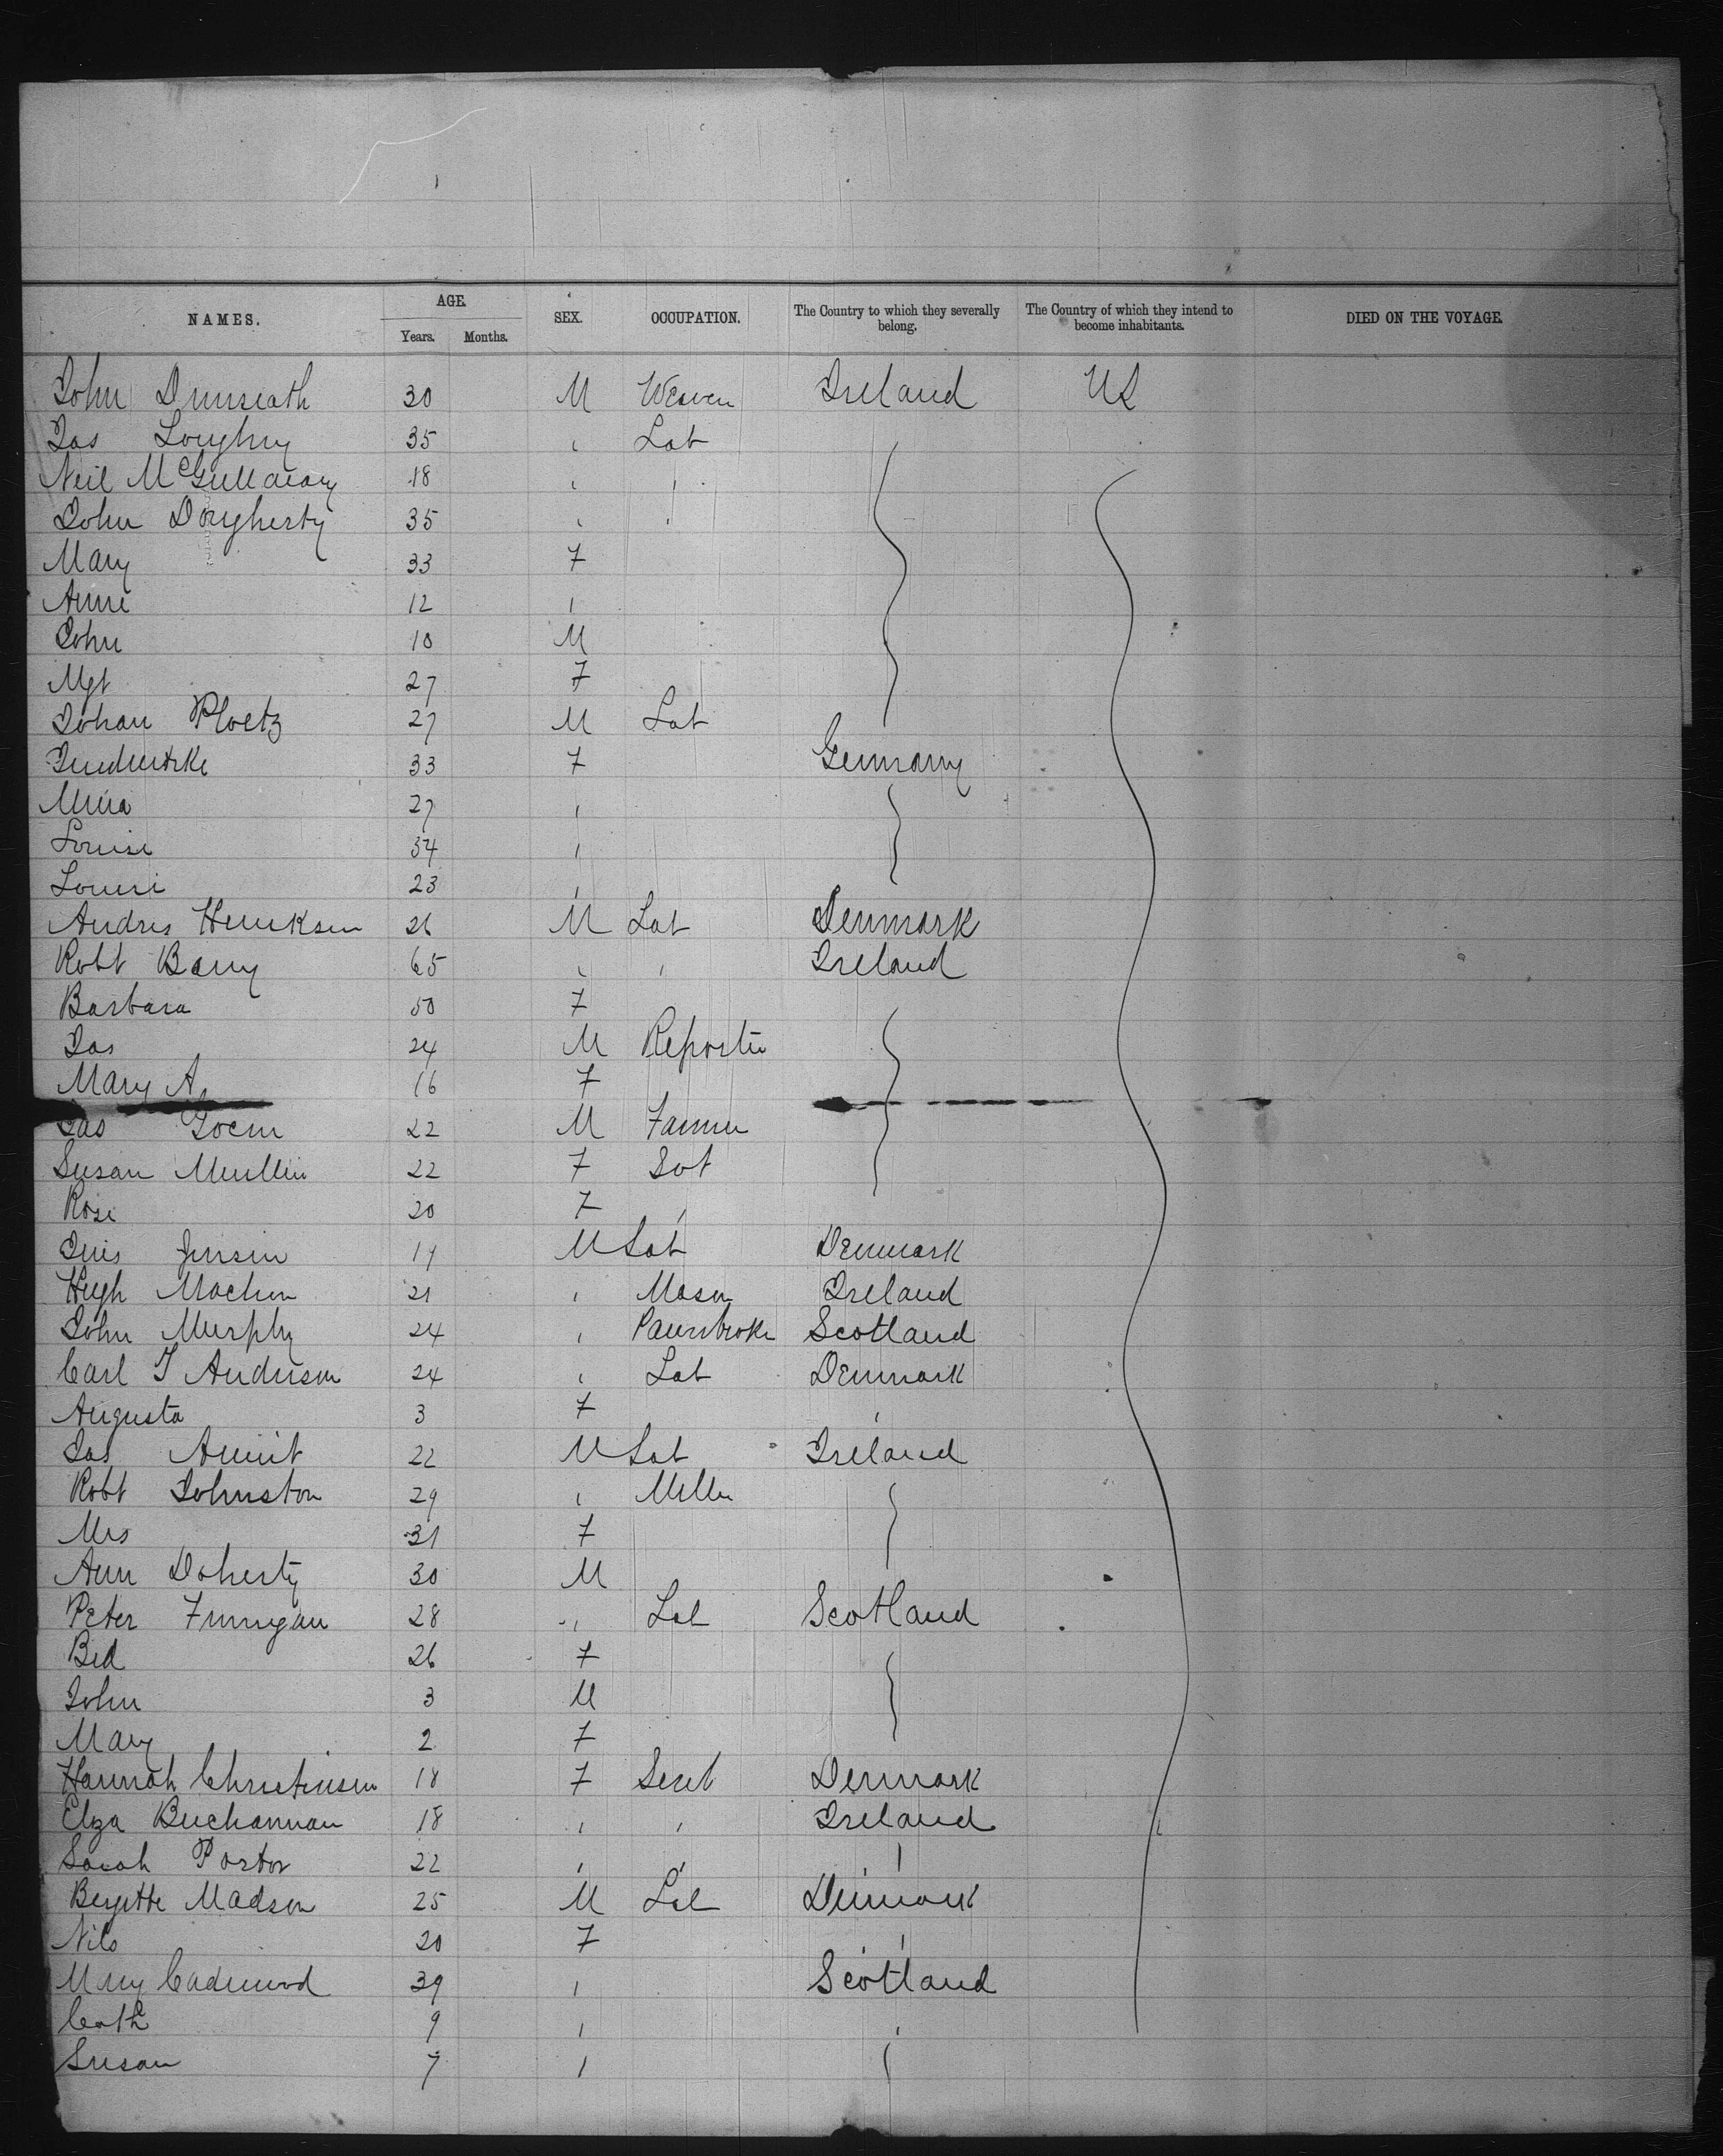 NAMES. AGE. Years. Months. SEX. OCCUPATION. The Country to which they severally belong. The Country of which they intend to become inhabitants. DIED ON THE VOYAGE.
John Dunseath 30 M Weaver Ireland US
Jas Loughry 35 " Lab
Neil McGillaway 18 " "
John Dougherty 35 " "
Mary 33 F
Anne 12 "
John 10 M
Mgt 27 F
Johan Ploetz 27 M Lab
33 F Germany
Mina 27 "
Louise 34 "
Louise 23 "
Andres Henriksen 26 M Lab Denmark
Robt Barry 65 " " Ireland
Barbara 50 F
Jas 24 M Reporter
Mary A 16 F
Jas 22 M Farmer
Susan Mullin 22 F
Rose 20 F "
Jensen M Lab Denmark
Hugh 21 " Mason Ireland
John Murphy 24 " Pawnbroke Scotland
Carl J Anderson 24 " Lab Denmark
Augusta 3 F "
Jas 22 M Lab Ireland
Robt Johnston 29 " Miller
Mrs 31 F
Ann Doherty 30 M
Peter Finnigan 28 " Lab Scotland
Bid 26 F
John 3 M
Mary 2 F
Hannah Christensen 18 F Servt Denmark
Elza Buchannan 18 " " Ireland
Sarah Porter 22 " " "
Birgitte Madsen 25 M Lab Denmark
Nils 20 F "
Mary Cadenwod 39 " Scotland
Cath 9 " "
Susan 7 " "